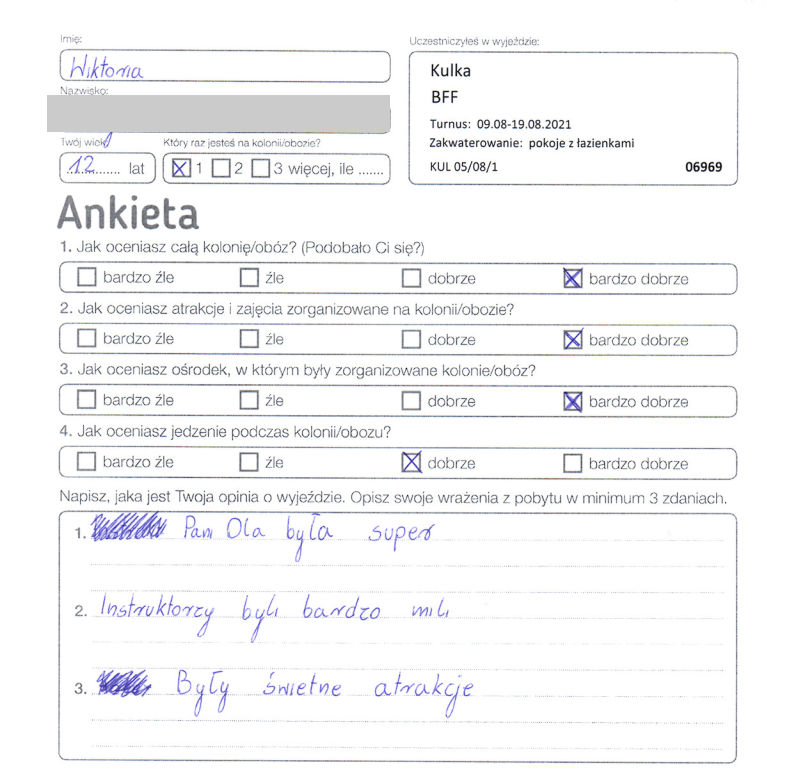 Imię:
Wiktoria
Nazwisko:
Twój wiek
12 lat
Który raz jesteś na kolonii/obozie?
1 2 3 więcej, ile .......
Uczestniczyłeś w wyjeździe:
Kulka
BFF
Turnus: 09.08-19.08.2021
Zakwaterowanie: pokoje z łazienkami
KUL 05/08/1 06969
Ankieta
1. Jak oceniasz całą kolonię/obóz? (Podobało Ci się?)
bardzo źle źle dobrze bardzo dobrze
2. Jak oceniasz atrakcje i zajęcia zorganizowane na kolonii/obozie?
bardzo źle źle dobrze bardzo dobrze
3. Jak oceniasz ośrodek, w którym były zorganizowane kolonie/obóz?
bardzo źle źle dobrze bardzo dobrze
4. Jak oceniasz jedzenie podczas kolonii/obozu?
bardzo źle źle dobrze bardzo dobrze
Napisz, jaka jest Twoja opinia o wyjeździe. Opisz swoje wrażenia z pobytu w minimum 3 zdaniach.
1. Pani Ola była super
2. Instruktorzy byli bardzo mili
3. Były świetne atrakcje